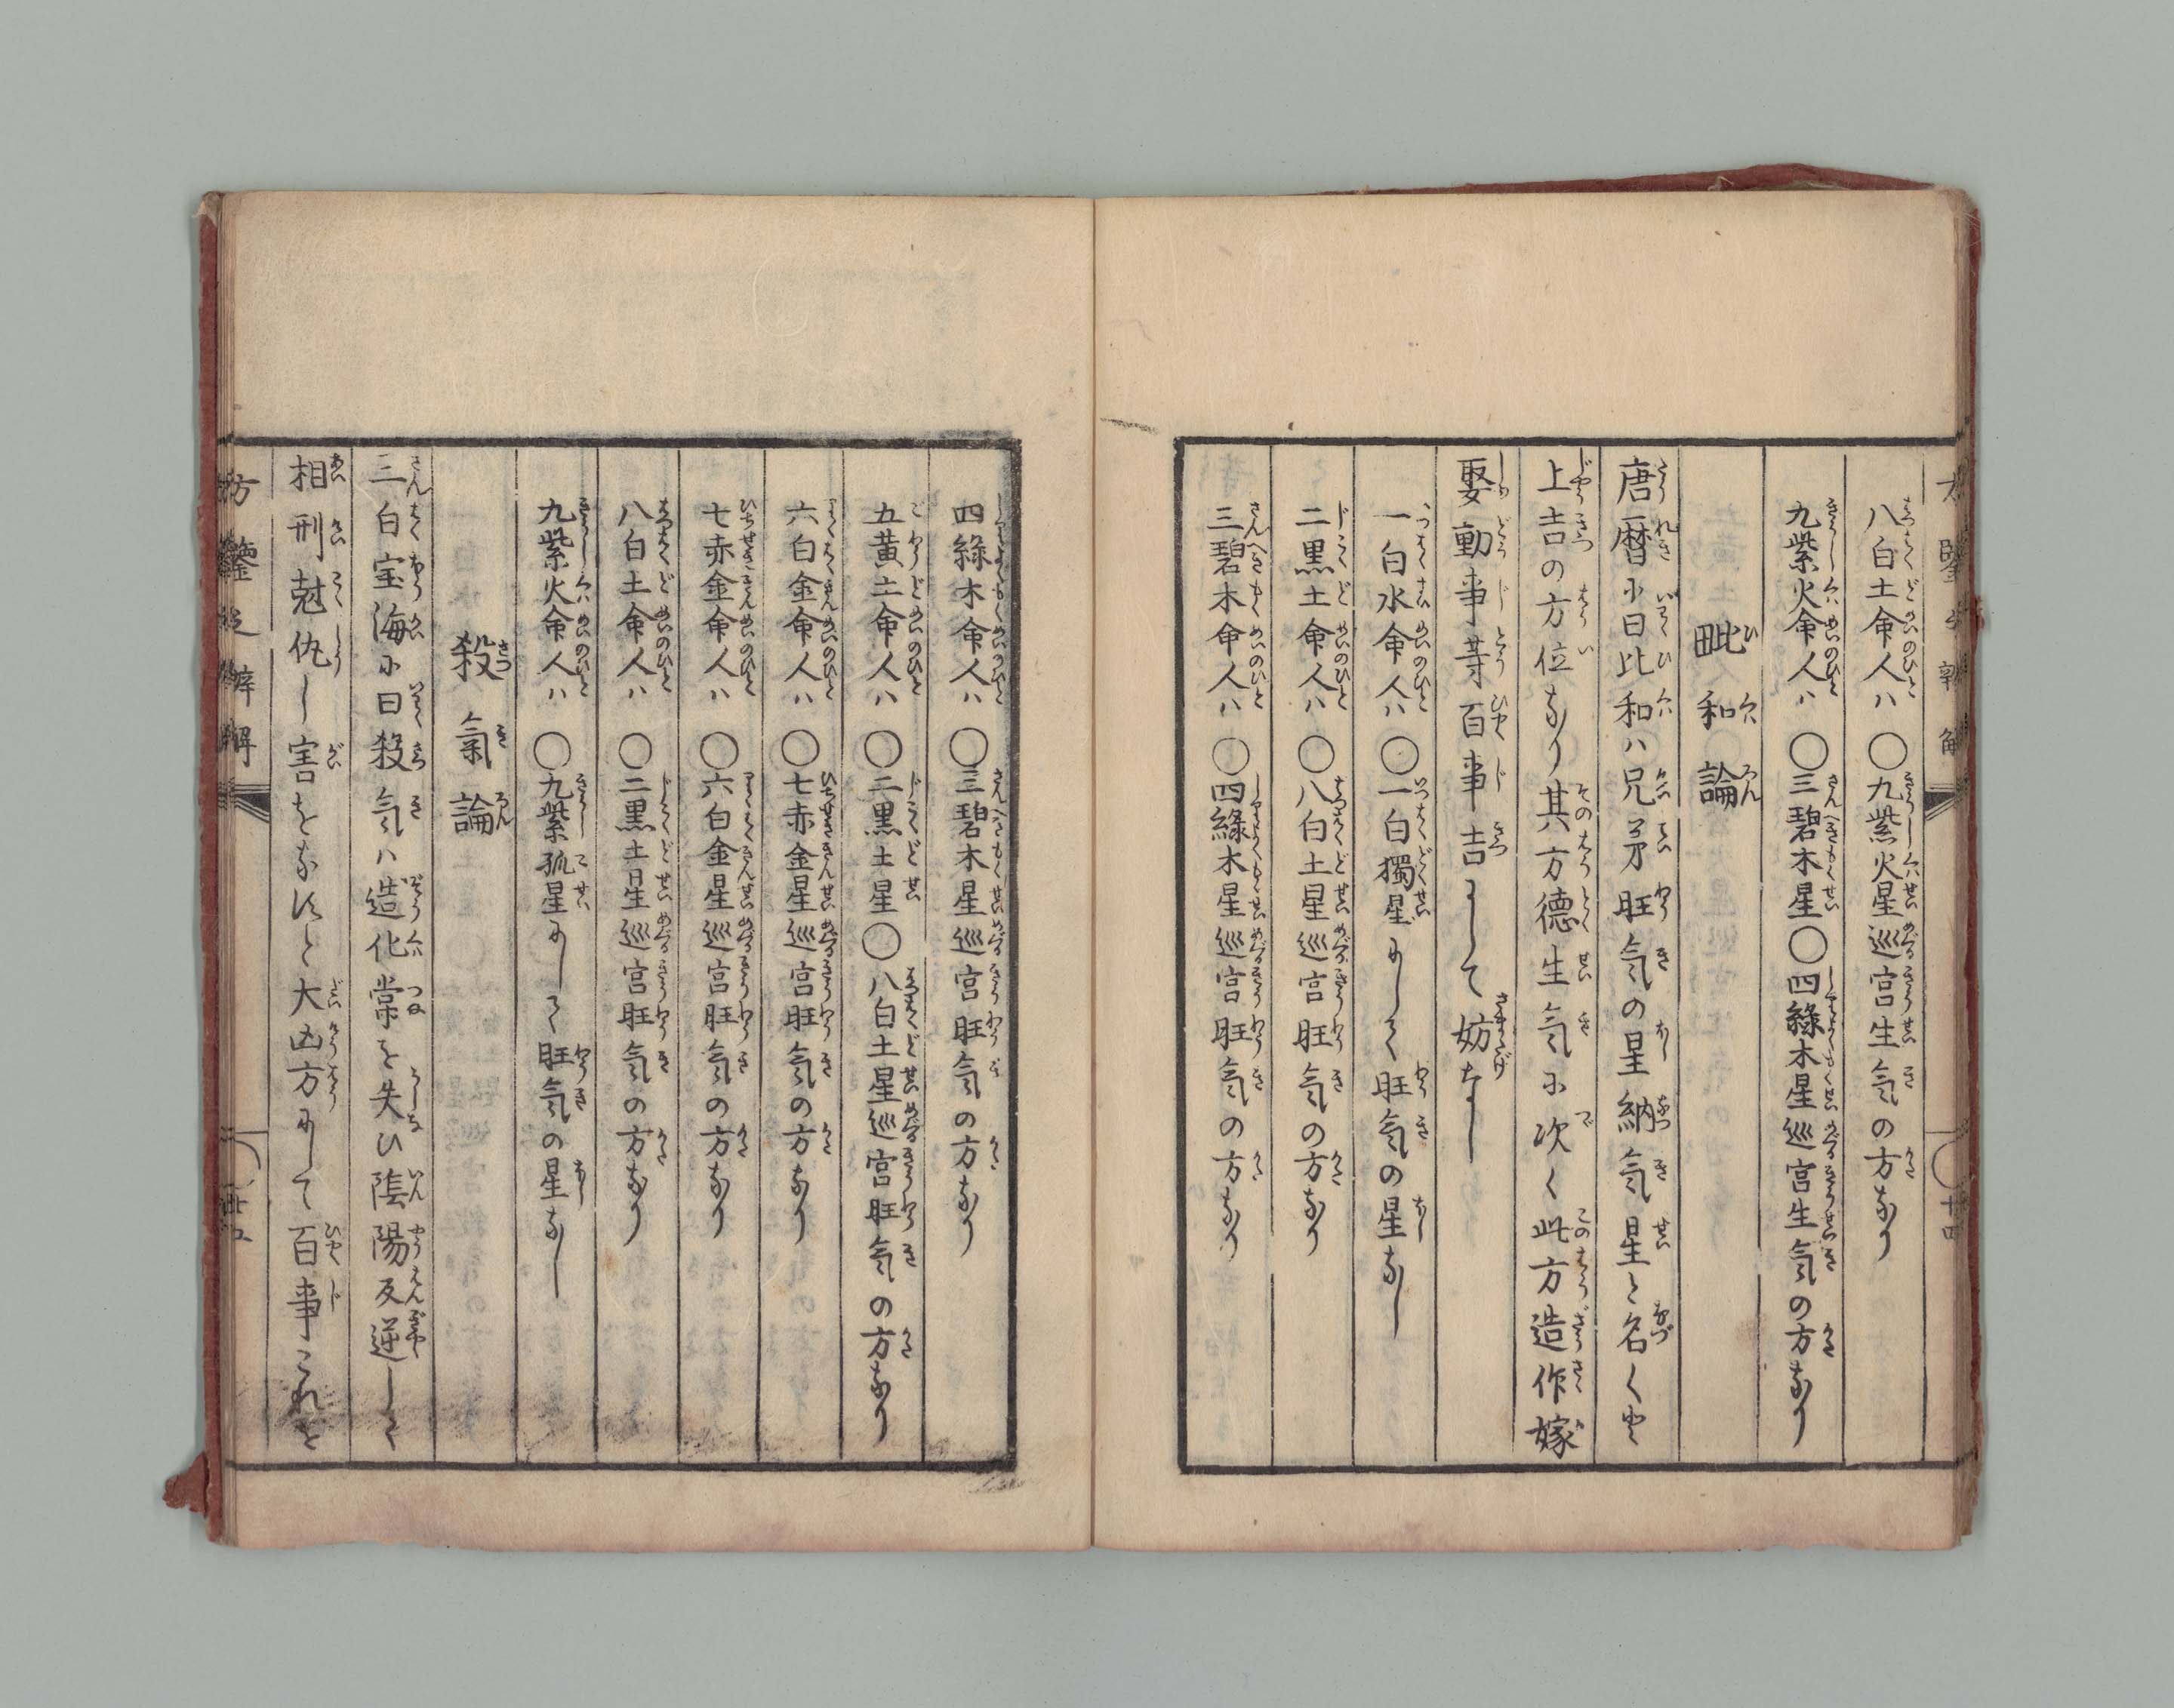 八白土命人ハ　〇九紫火星巡宮生气の方なり
九紫火命人ハ　〇三碧木星〇四綠木星巡宮生气の方なり
毗和論
唐暦に曰比和ハ兄弟旺气の星納气星と名く也
上吉の方位なり其方德生气に次く此方造作嫁
娶動事等百事吉にして妨なし
一白水命人ハ　〇一白獨星にして旺气の星なし
二黒土命人ハ　〇八白土星巡宮旺气の方なり
三碧木命人ハ　〇四綠木星巡宮旺气の方なり
四綠木命人ハ　〇三碧木星巡宮旺气の方なり
五黄土命人ハ　〇二黒土星〇八白土星巡宮旺气の方なり
六白金命人ハ　〇七赤金星巡宮旺气の方なり
七赤金命人ハ　〇六白金星巡宮旺气の方なり
八白土命人ハ　〇二黒土星巡宮旺气の方なり
九紫火命人ハ　〇九紫孤星にして旺气の星なし
殺氣論
三白宝海に曰殺气ハ造化常を失ひ陰陽反逆して
相刑尅仇し害をなすと大凶方にして百事これを